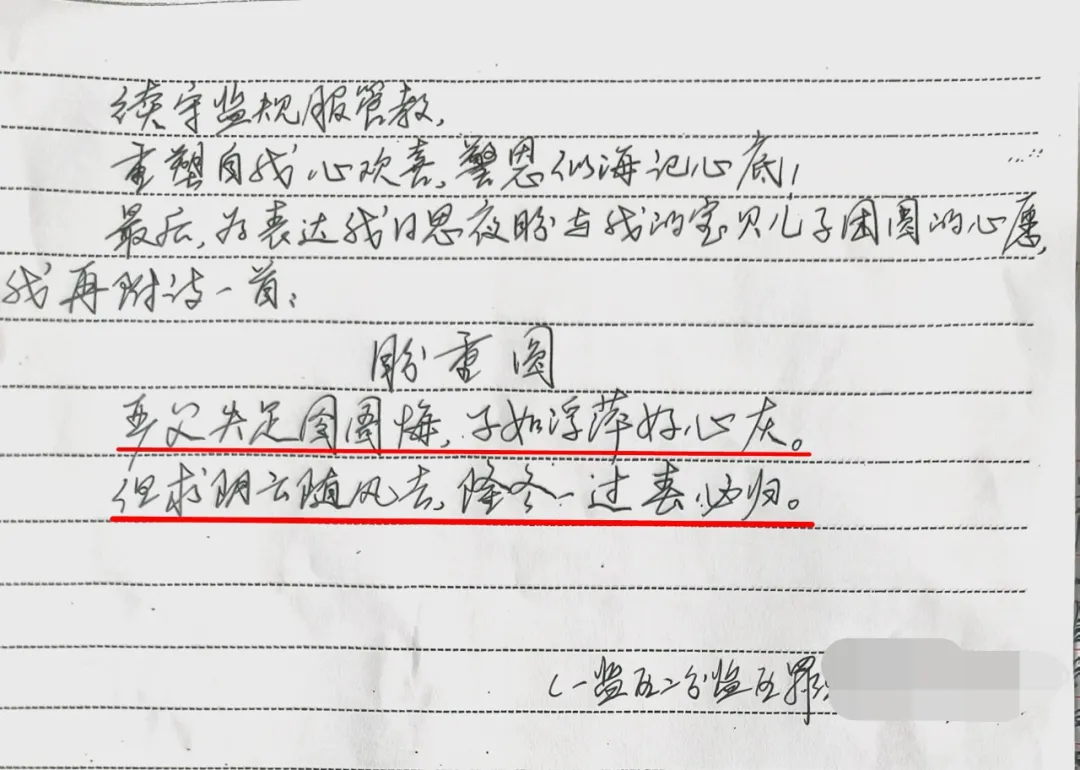 续守监规服管教,
重塑自我心欢喜,警恩似海记心底!
最后,为表达我日思夜盼与我的宝贝儿子团圆的心愿,
我再附诗一首:
盼重圆
吾父失足囹圄悔,子如浮萍好心灰。
但求阴云随风去,隆冬一过春必归。
(一监区二分监区罪